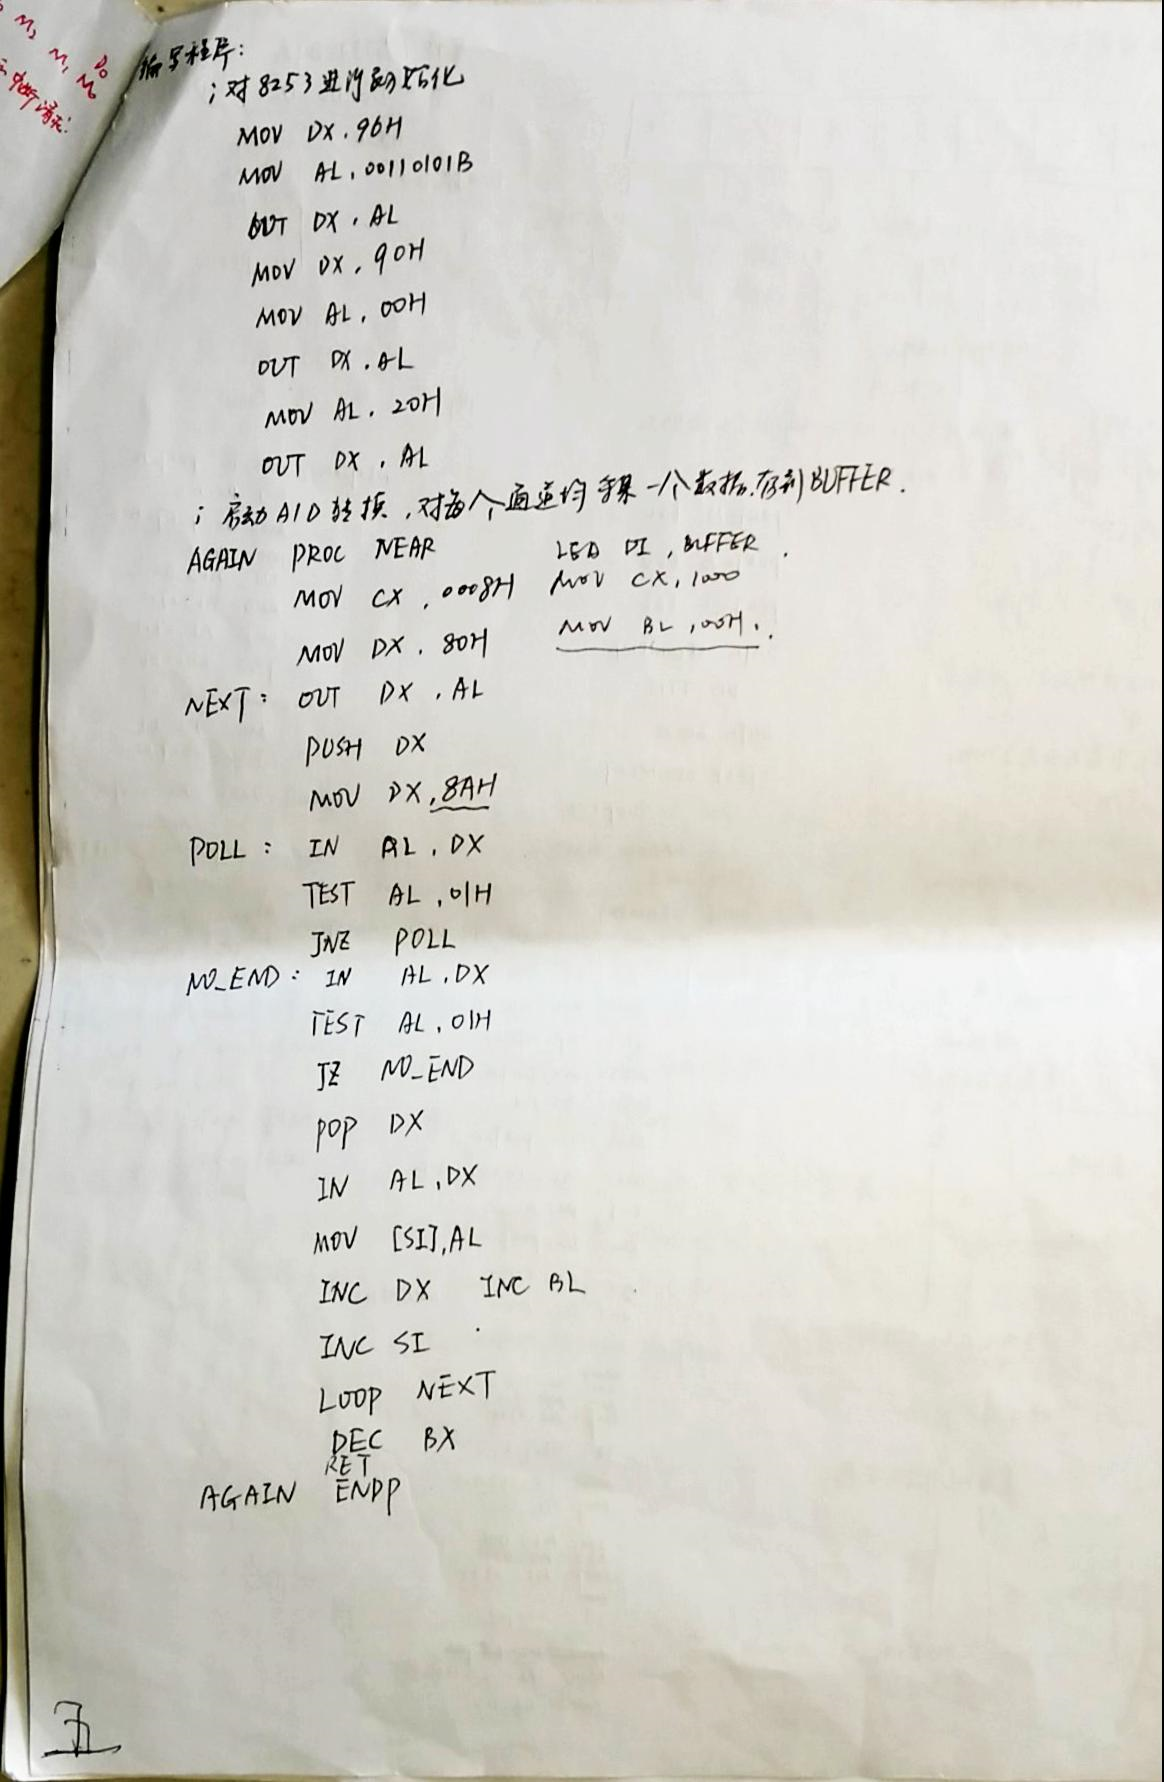 M₂ M₁ M₀
D₀
中断请求!
编写程序:
;对8253进行初始化
MOV DX, 96H
MOV AL, 00110101B
OUT DX, AL
MOV DX, 90H
MOV AL, 00H
OUT DX, AL
MOV AL, 20H
OUT DX, AL
; 启动A/D转换,对每个通道均采一个数据,存到BUFFER.
AGAIN PROC NEAR LEA DI, BUFFER.
MOV CX, 0008H MOV CX, 1000
MOV DX, 80H MOV BL, 00H.
NEXT: OUT DX, AL
PUSH DX
MOV DX, 8AH
POLL: IN AL, DX
TEST AL, 01H
JNZ POLL
NO_END: IN AL, DX
TEST AL, 01H
JZ NO_END
POP DX
IN AL, DX
MOV [SI], AL
INC DX INC BL
INC SI
LOOP NEXT
DEC BX
RET
AGAIN ENDP
五